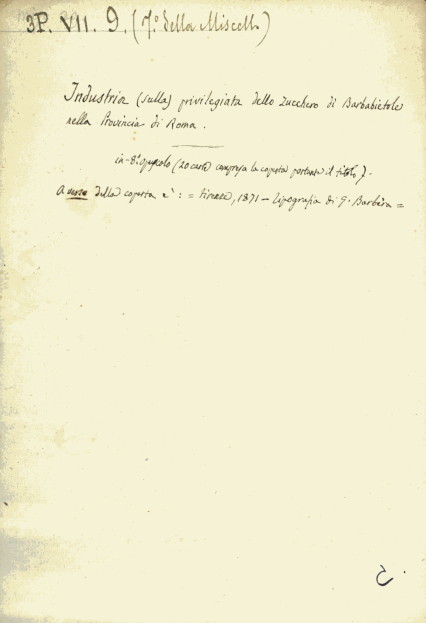 3P. VII. 9. (7.º della Miscell.)
Industria (sulla) privilegiata dello Zucchero di Barbabietole
nella Provincia di Roma.
in-8.º opuscolo (20 carte compresa la coperta portante il titolo).
A verso della coperta è: = Firenze, 1871 - Tipografia di G. Barbèra =